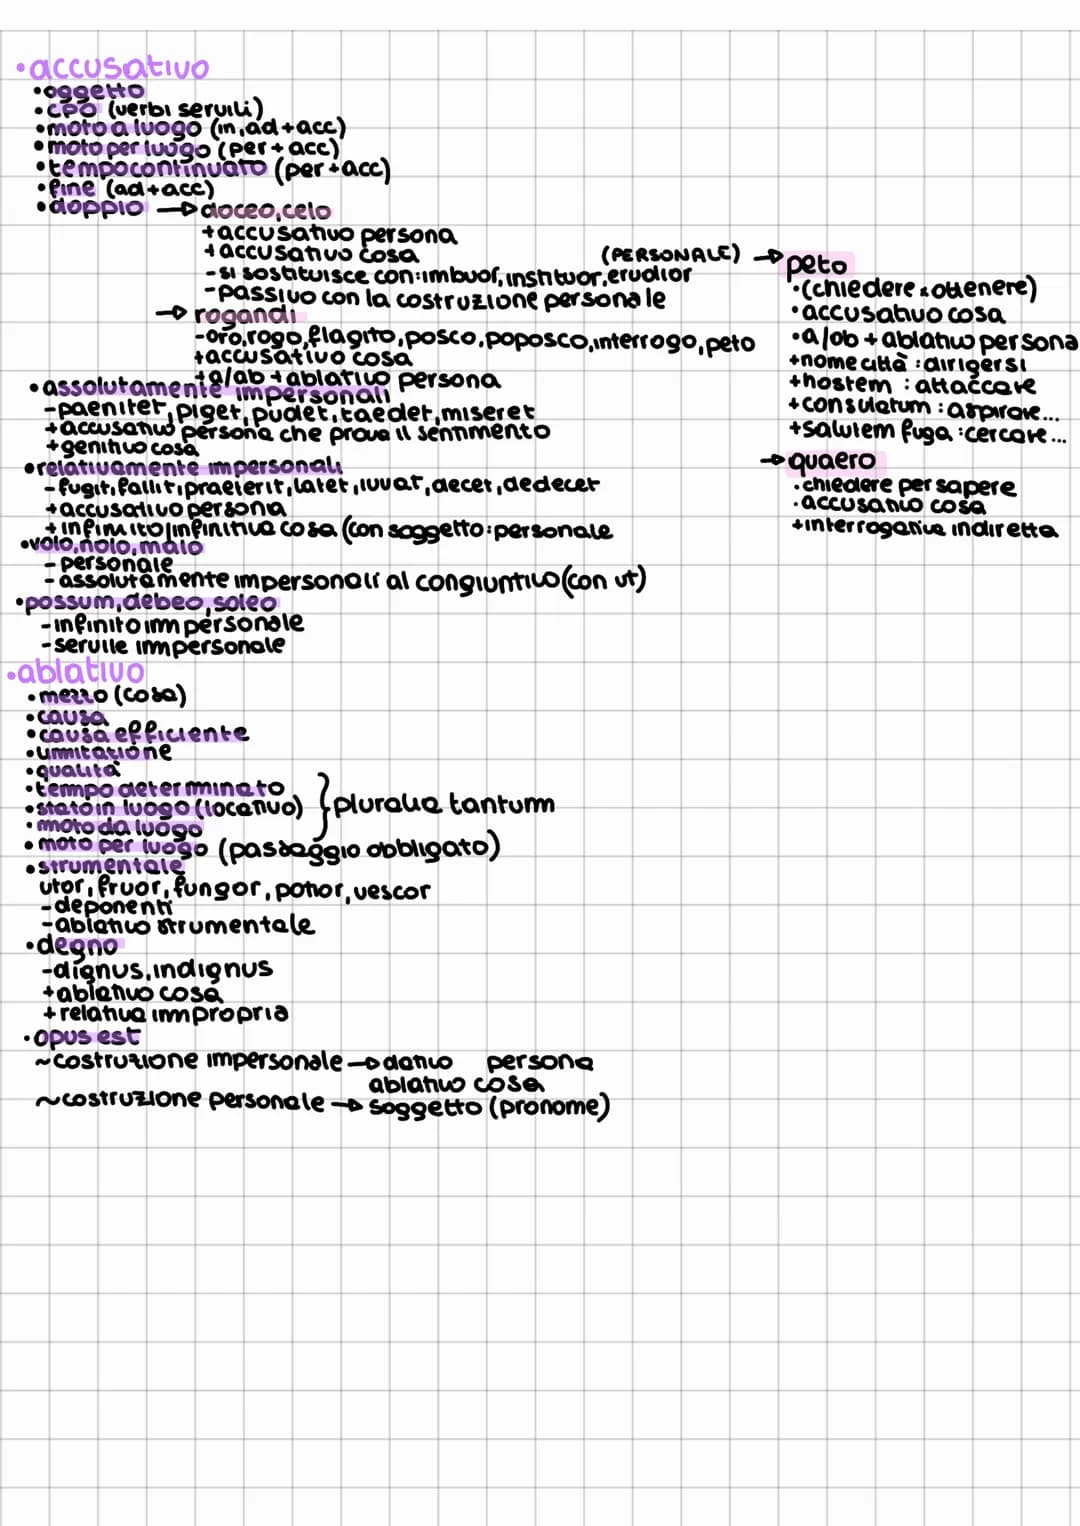 •accusativo
•oggetto
•CPO (verbi servili)
•moto a luogo (in,ad+acc)
•moto per luogo (per+acc)
•tempo continuato (per+acc)
•fine (ad+acc)
•doppio → doceo,celo
+accusativo persona
+accusativo cosa
-si sostituisce con:imbuor,instituor,erudior
-passivo con la costruzione personale
→ rogandi
-oro,rogo,flagito,posco,poposco,interrogo,peto
+accusativo cosa
+a/ab+ablativo persona
(PERSONALE) → peto
•(chiedere x ottenere)
•accusativo cosa
•a/ab+ablativo persona
+nome città:dirigersi
+hostem:attaccare
+consulatum:aspirare...
+salutem fuga:cercare...
→ quaero
•chiedere per sapere
•accusativo cosa
+interrogativa indiretta
•assolutamente impersonali
-paenitet,piget,pudet,taedet,miseret
+accusativo persona che prova il sentimento
+genitivo cosa
•relativamente impersonali
-fugit,fallit,praeterit,latet,iuvat,decet,dedecet
+accusativo persona
+infinito/infinitiva cosa (con soggetto:personale
•volo,nolo,malo
-personale
-assolutamente impersonali al congiuntivo (con ut)
•possum,debeo,soleo
-infinito impersonale
-servile impersonale
•ablativo
•mezzo (cosa)
•causa
•causa efficiente
•limitazione
•qualità
•tempo determinato
•stato in luogo (locativo) } pluralia tantum
•moto da luogo
•moto per luogo (passaggio obbligato)
•strumentale
utor,fruor,fungor,potior,vescor
-deponenti
-ablativo strumentale
•degno
-dignus,indignus
+ablativo cosa
+relativa impropria
•opus est
~costruzione impersonale → dativo persona
ablativo cosa
~costruzione personale → soggetto (pronome)